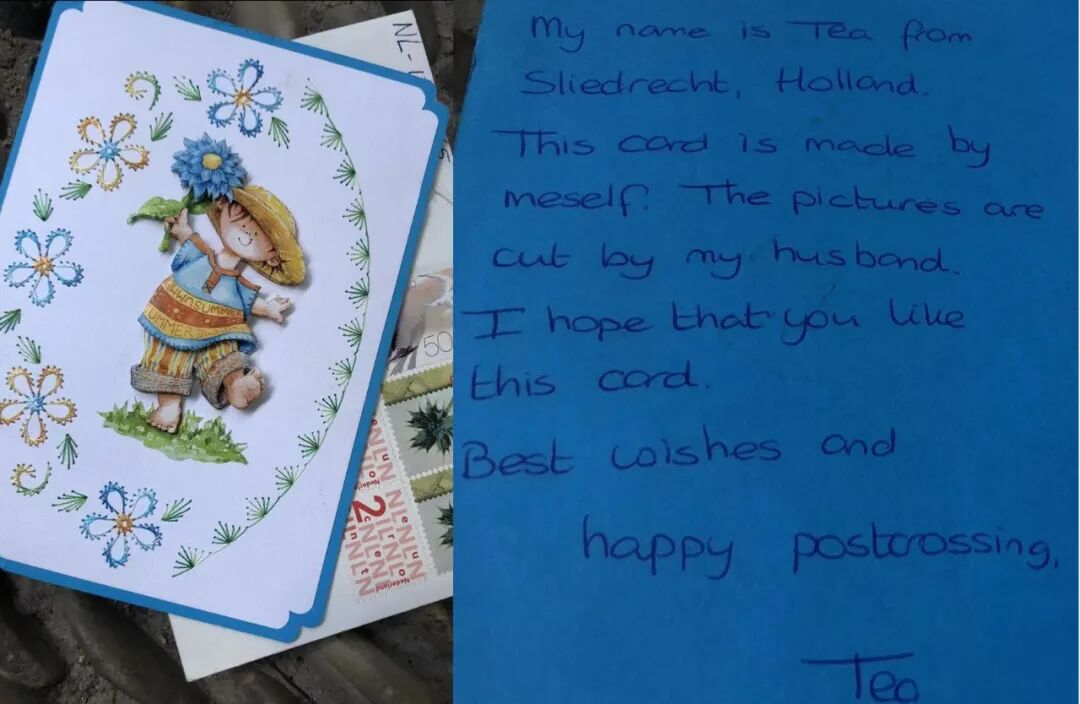 NL-
SUMMER
SUMMER
50
2
Nederland
My name is Tea from
Sliedrecht, Holland.
This card is made by
meself. The pictures are
cut by my husband.
I hope that you like
this card.
Best wishes and
happy postcrossing,
Tea